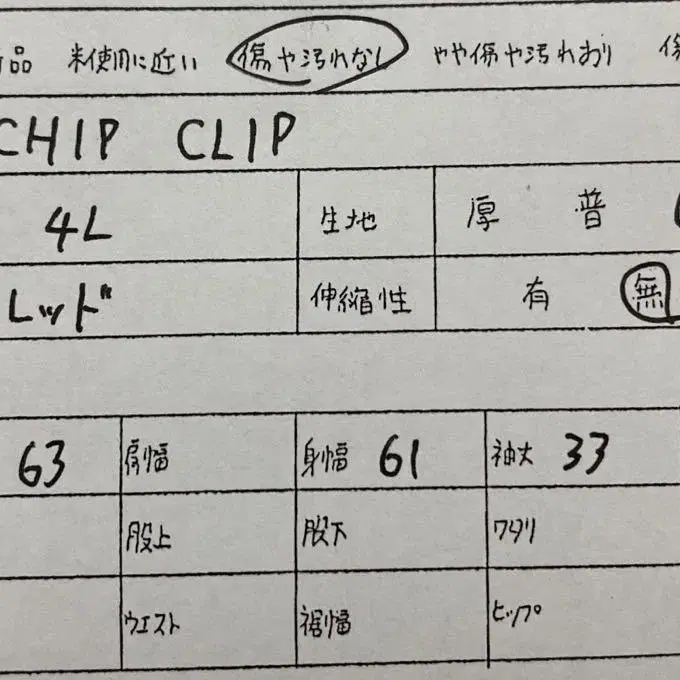 品 未使用に近い 傷や汚れなし やや傷や汚れあり 傷
CHIP CLIP
4L 生地 厚 普
レッド 伸縮性 有 無
63 肩幅 身幅 61 袖丈 33
股上 股下 ワタリ
ウエスト 裾幅 ヒップ